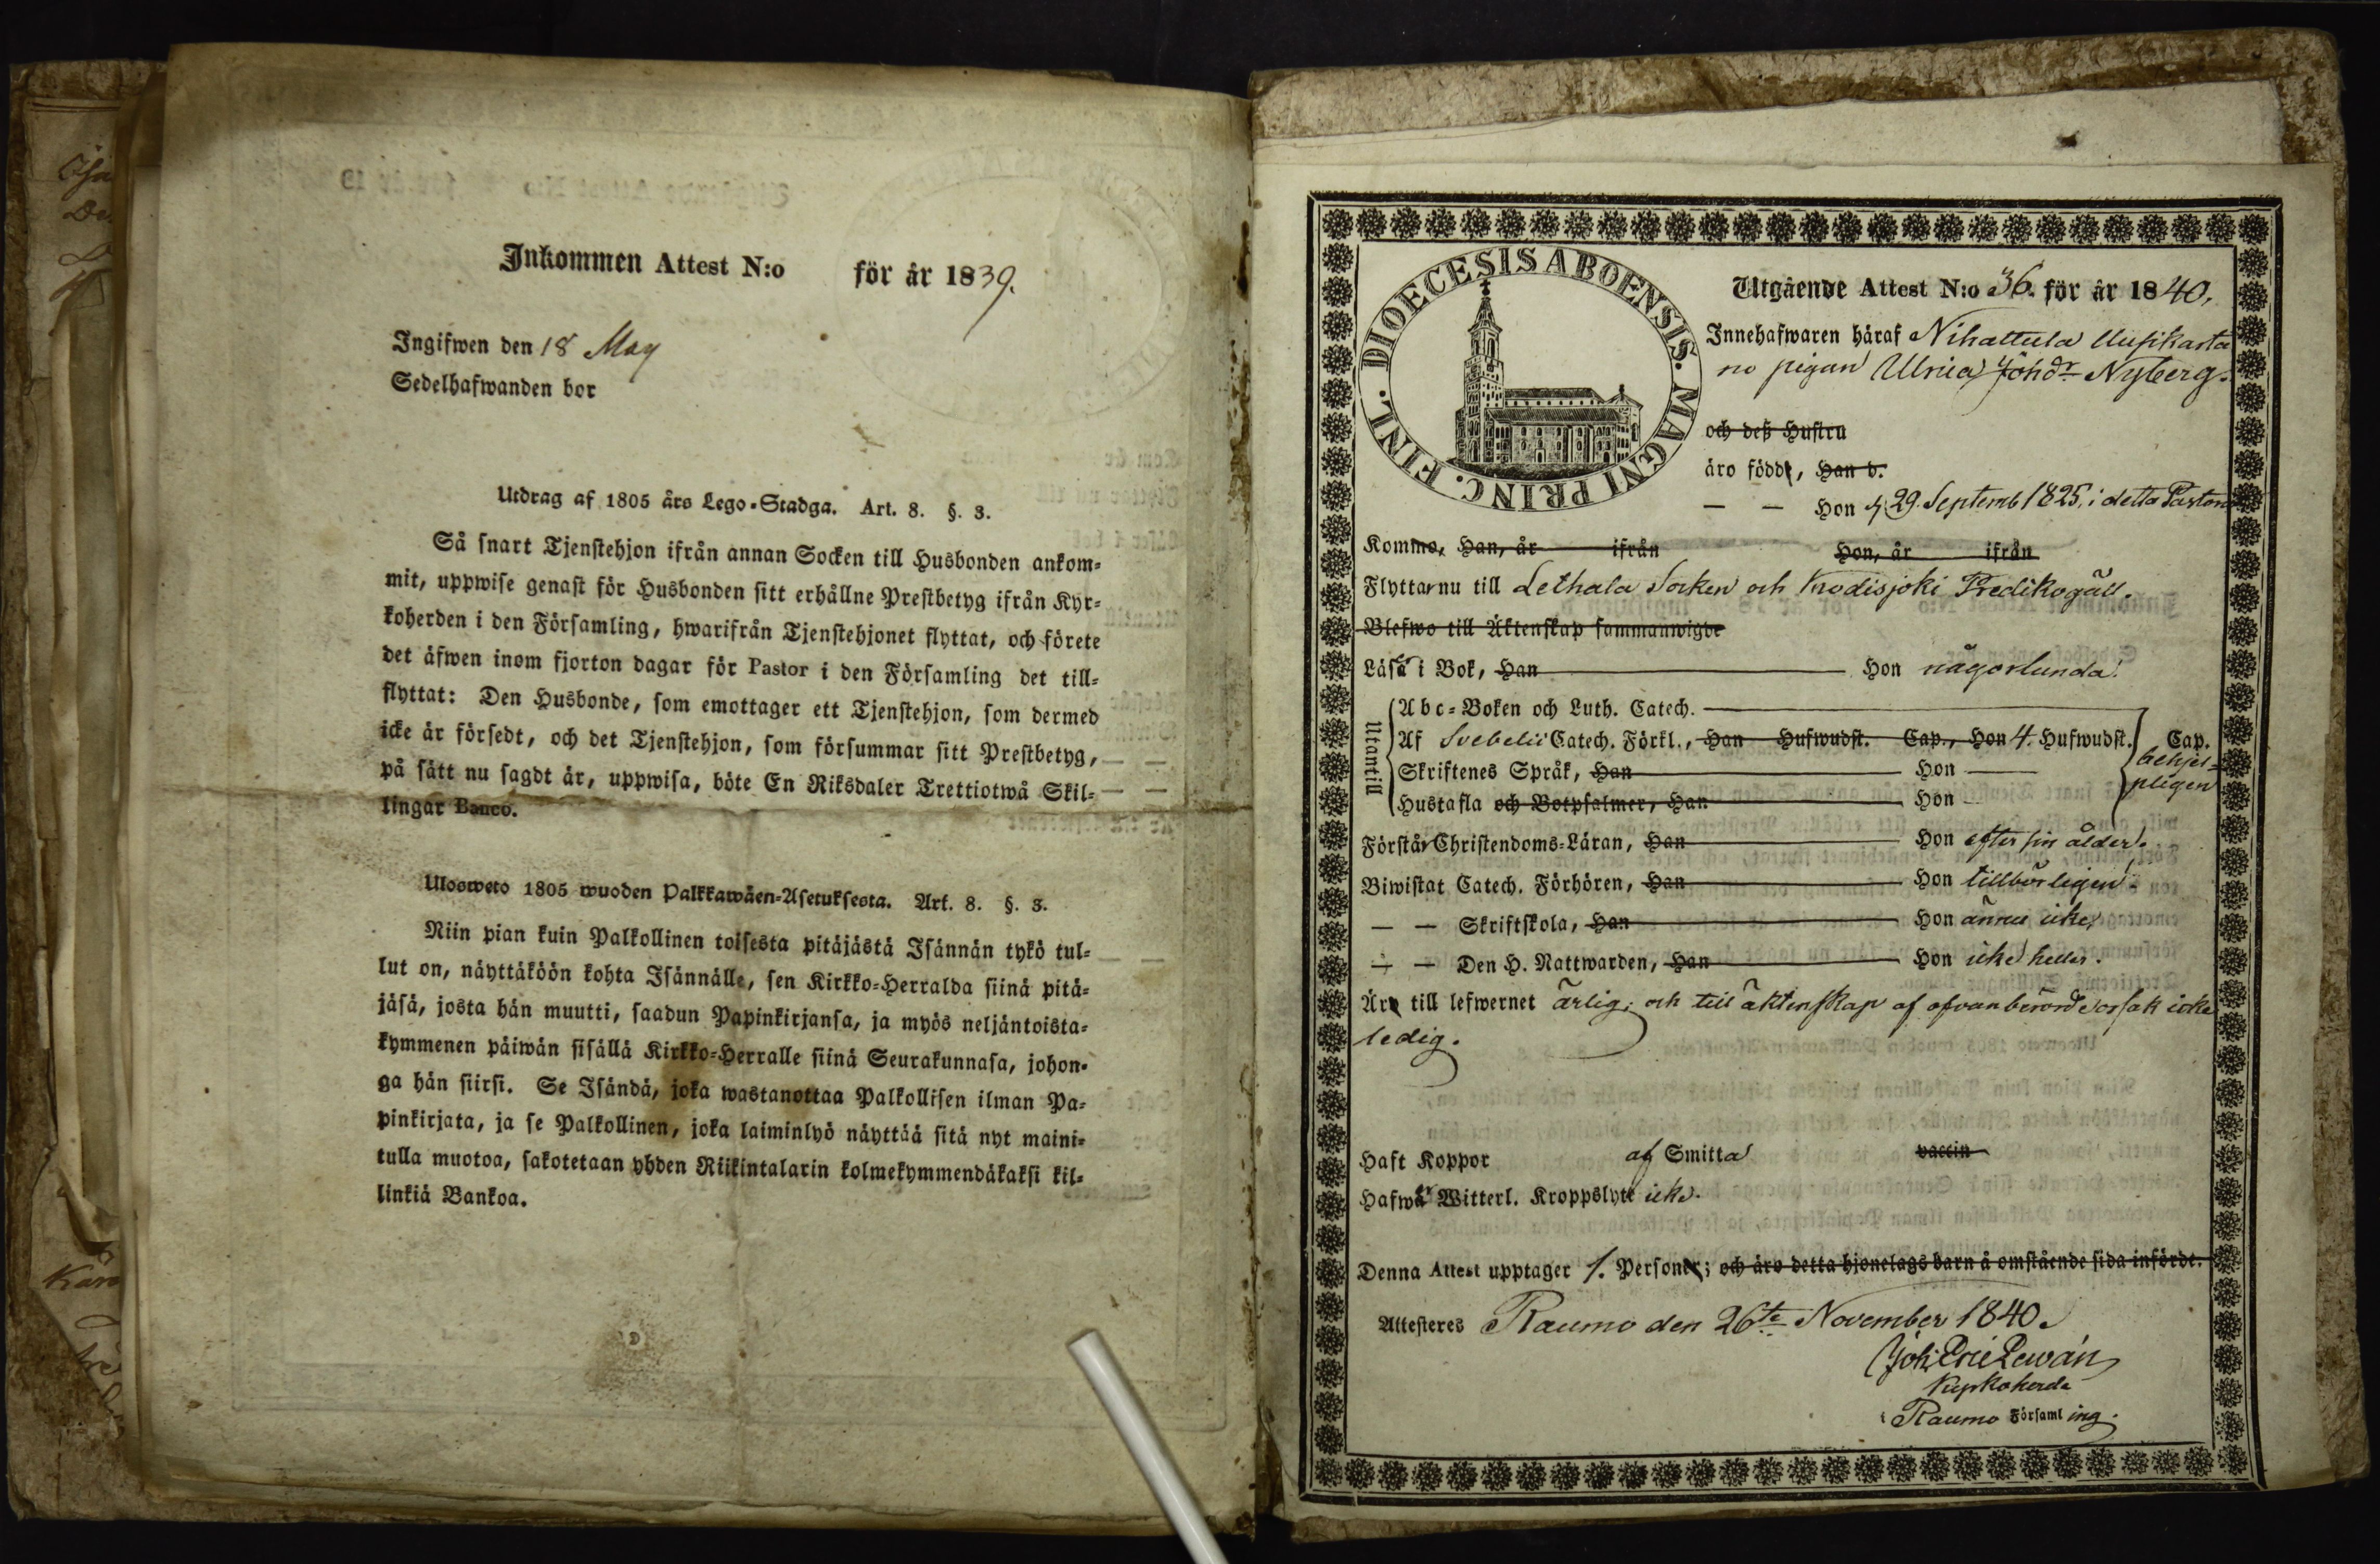 Inkommen Attest N:o för år 1839.
Ingifwen den 18 May
Sedelhafwanden bor
Utdrag af 1805 års Lego-Stadga. Art. 8. §. 3.
Så snart Tjenstehjon ifrån annan Socken till Husbonden ankom-
mit, uppwise genast för Husbonden sitt erhållne Prestbetyg ifrån Kyr-
koherden i den Församling, hwarifrån Tjenstehjonet flyttat, och förete
det äfwen inom fjorton dagar för Pastor i den Församling det till-
flyttat: Den Husbonde, som emottager ett Tjenstehjon, som dermed
icke är försedt, och det Tjenstehjon, som försummar sitt Prestbetyg,
på sätt nu sagdt är, uppwisa, böte En Riksdaler Trettiotwå Skil-
lingar Banco.
Ulosweto 1805 wuoden Palkkawäen-Asetuksesta. Art. 8. §. 3.
Niin pian kuin Palkollinen toisesta pitäjästä Isännän tykö tul-
lut on, näyttäköön kohta Isännälle, sen Kirkko-Herralda siinä pitä-
jäsä, josta hän muutti, saadun Papinkirjansa, ja myös neljäntoista-
kymmenen päiwän sisällä Kirkko-Herralle siinä Seurakunnasa, johon-
ga hän siirsi. Se Isändä, joka wastanottaa Palkollisen ilman Pa-
pinkirjata, ja se Palkollinen, joka laiminlyö näyttää sitä nyt maini-
tulla muotoa, sakotetaan yhden Riikintalarin kolmekymmendäkaksi kil-
linkiä Bankoa.
DIOECESIS ABOENSIS. MAGNI PRINC. FINL.
Utgående Attest N:o 36. för år 1840.
Innehafwaren häraf Nihattula Uusikarta
no pigan Ulrica Johdr Nyberg.
och deß Hustru
äro födde, Han d.
— — Hon d 29. Septemb 1825, i detta Pastorat
Komme, Han, år ifrån Hon, år ifrån
Flyttar nu till Lethala Socken och Hodisjoki Predikogäll.
Blefwo till Äktenskap sammanwigde
Läser i Bok, Han Hon någorlunda.
Utantill
Abc-Boken och Luth. Catech.
Af Svebelii Catech. Förkl., Han Hufwudst. Cap., Hon 4. Hufwudst. Cap.
behjel-
pligen
Skriftenes Språk, Han Hon
Hustafla och Botpsalmer, Han Hon
Förstår Christendoms-Läran, Han Hon efter sin ålder.
Biwistat Catech. Förhören, Han Hon tillbörligen.
— — Skriftskola, Han Hon ännu icke,
— — Den H. Nattwarden, Han Hon icke heller.
Är till lefwernet ärlig; och till äktenskap af ofvanberörde orsak icke
ledig.
Haft Koppor af Smitta vaccin
Hafwer Witterl. Kroppslyte icke.
Denna Attest upptager 1. Person; och äro detta hjonelags barn å omstående sida införde.
Attesteres Raumo den 26te November 1840.
Joh: Eric Lewán
Kyrkoherde
i Raumo Församling.